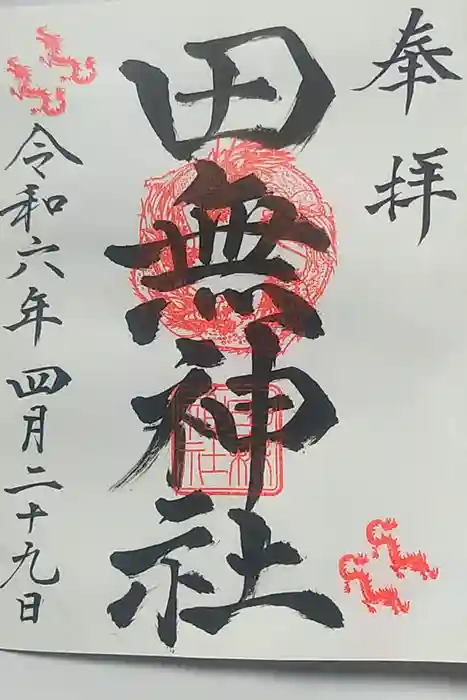 奉拝
田無神社
令和六年四月二十九日